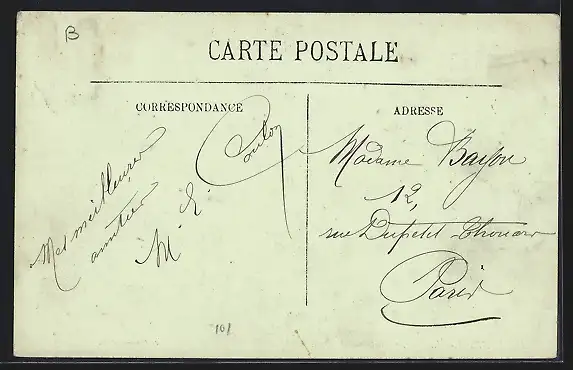 B
CARTE POSTALE
CORRESPONDANCE
Mes meilleures
amitiés
M. L. Coulon
ADRESSE
Madame
12,
rue Dupetit-Thouars
Paris
101